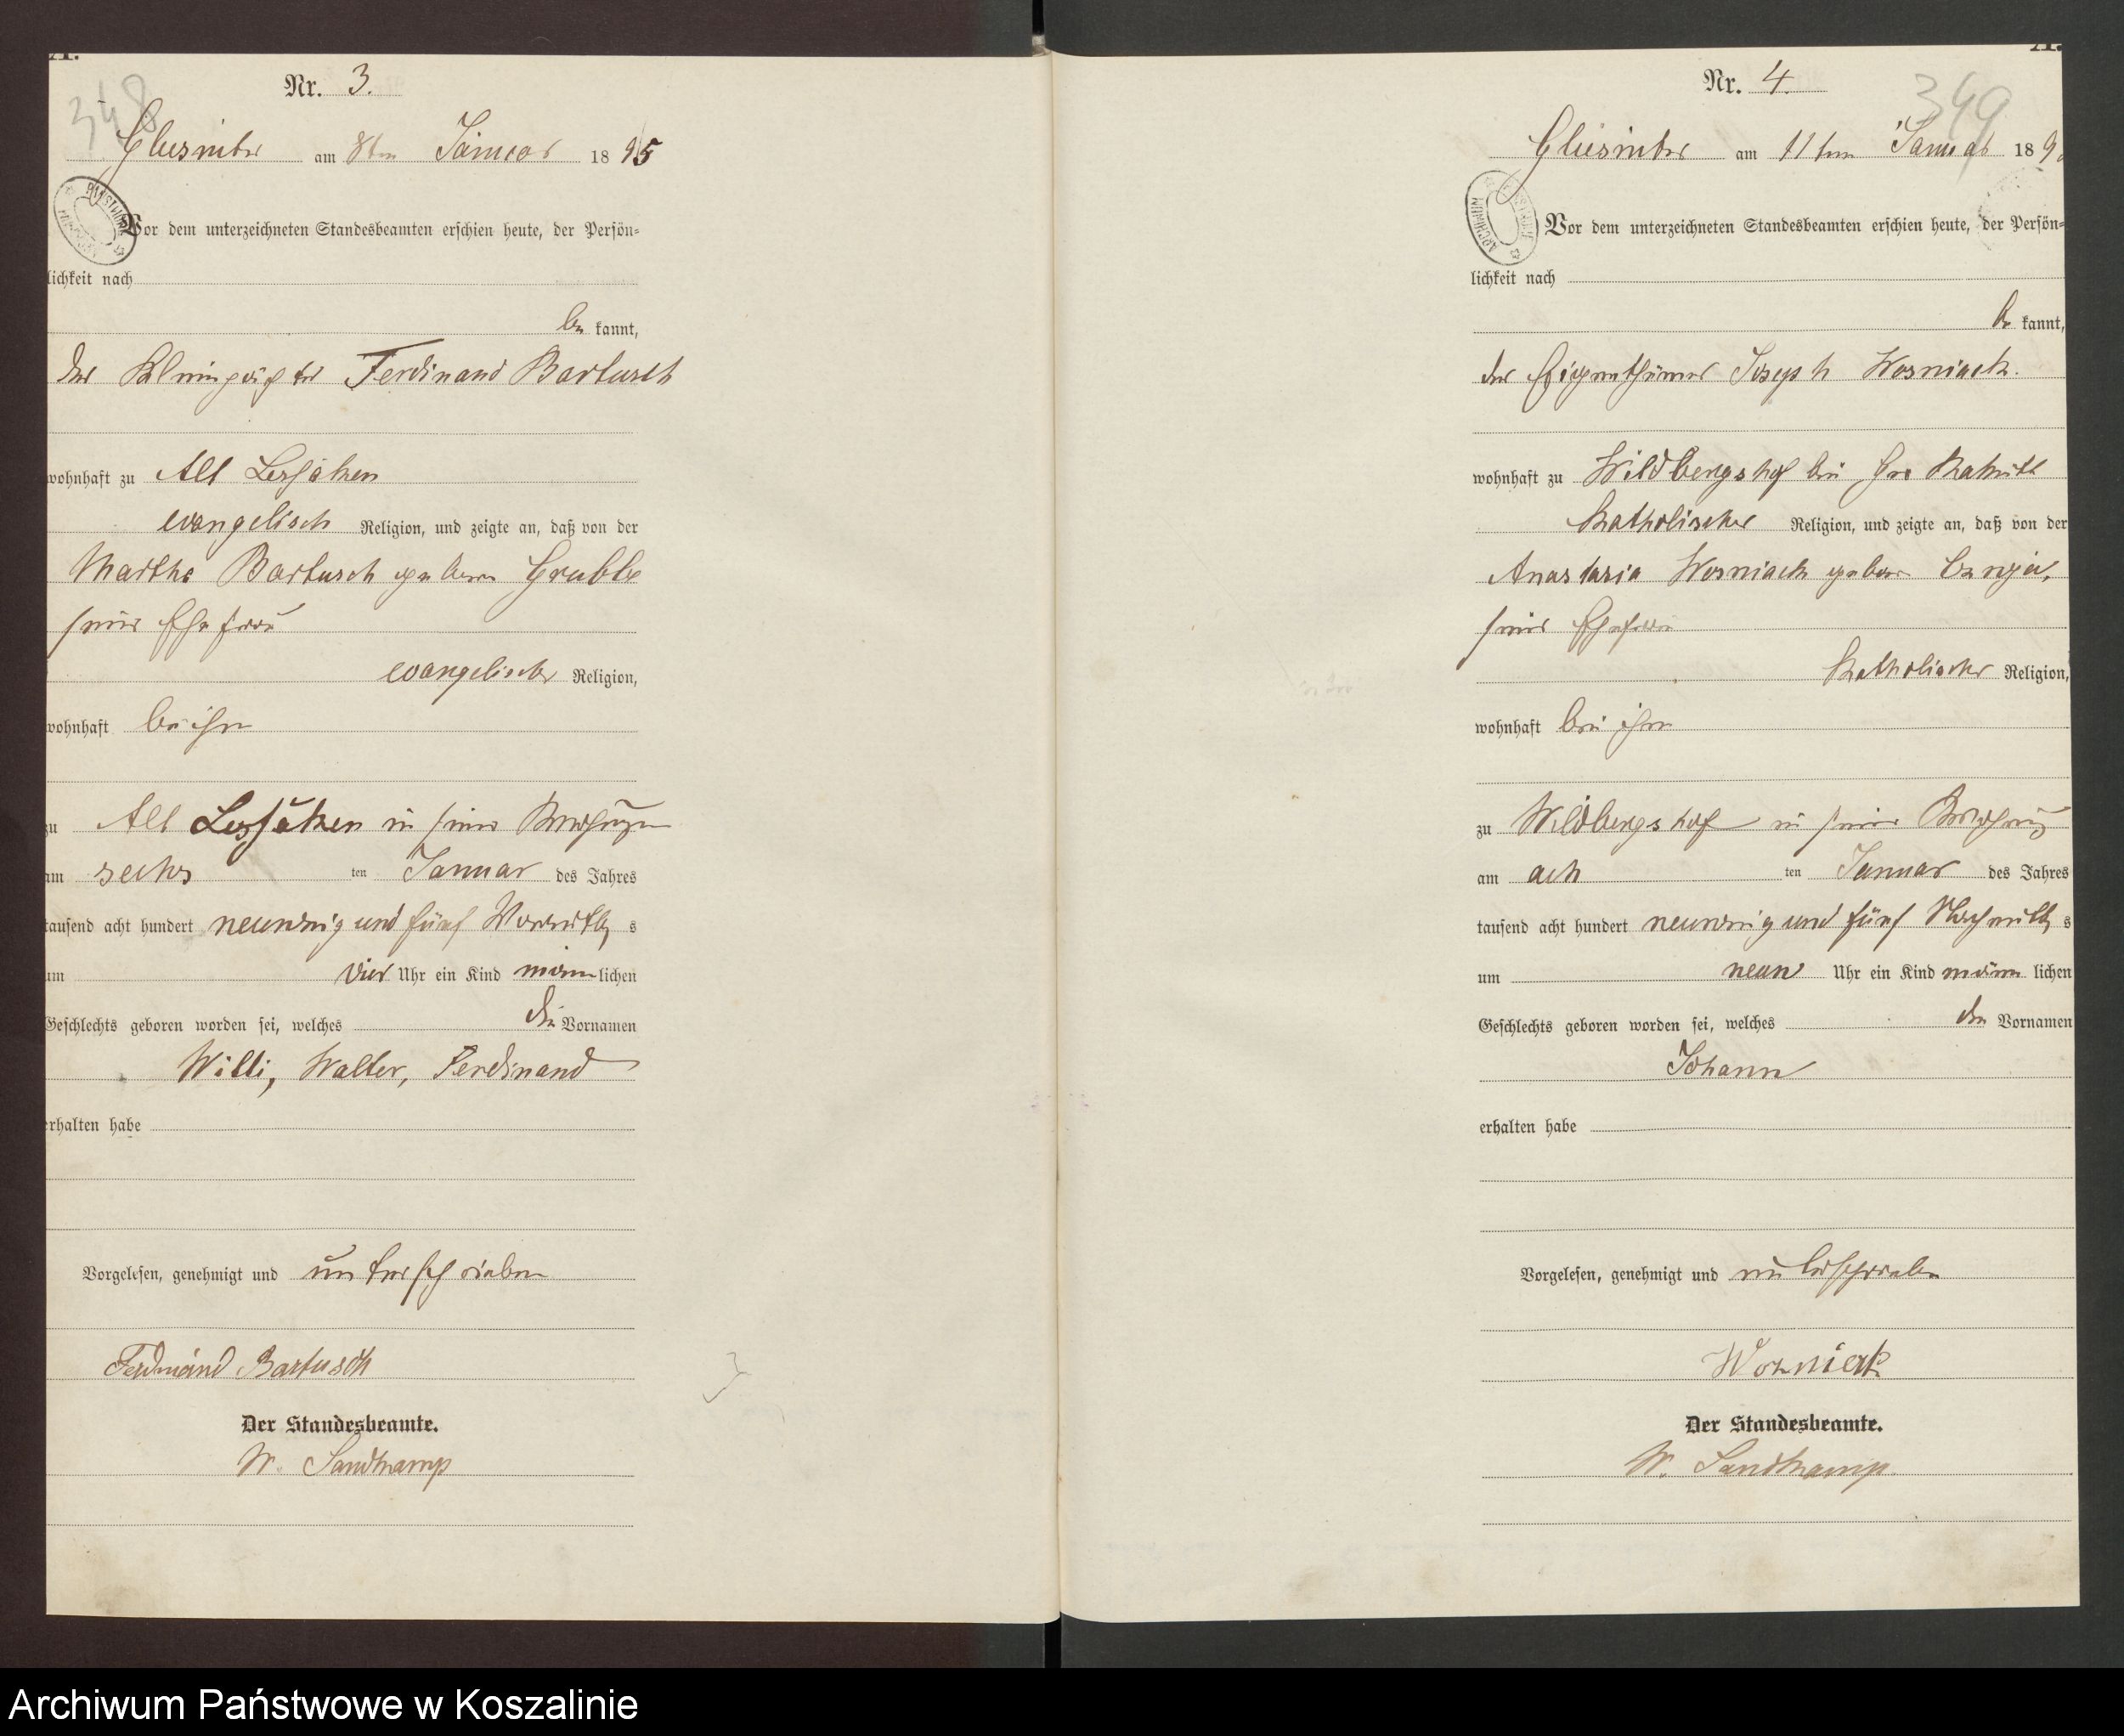 Nr. 3.
348
am 8ten Januar 1895
Vor dem unterzeichneten Standesbeamten erschien heute, der Persön-
lichkeit nach
be kannt,
der Ferdinand Bartusch
wohnhaft zu Alt
evangelisch Religion, und zeigte an, daß von der
Martha Bartusch geboren Grubbe
seiner Ehefrau
evangelischer Religion,
wohnhaft bei ihm
zu Alt in seiner Wohnung
am sechs ten Januar des Jahres
tausend acht hundert neunzig und fünf Vormittags
um vier Uhr ein Kind männlichen
Geschlechts geboren worden sei, welches die Vornamen
Willi, Walter, Ferdinand
erhalten habe
Vorgelesen, genehmigt und unterschrieben
Ferdinand Bartusch
Der Standesbeamte.
W. Sandkamp
Nr. 4.
349
am 11ten Januar 189
Vor dem unterzeichneten Standesbeamten erschien heute, der Persön-
lichkeit nach
be kannt,
der Eigenthümer Joseph Wosniack.
wohnhaft zu Wildbergshof bei
katholischer Religion, und zeigte an, daß von der
Anastasia Wosniack geboren
seiner Ehefrau
katholischer Religion,
wohnhaft bei ihm
zu Wildbergshof in seiner Wohnung
am ach ten Januar des Jahres
tausend acht hundert neunzig und fünf Nachmittags
um neun Uhr ein Kind männ lichen
Geschlechts geboren worden sei, welches den Vornamen
Johann
erhalten habe
Vorgelesen, genehmigt und unterschrieben
Wozniak
Der Standesbeamte.
W. Sandkamp
Archiwum Państwowe w Koszalinie